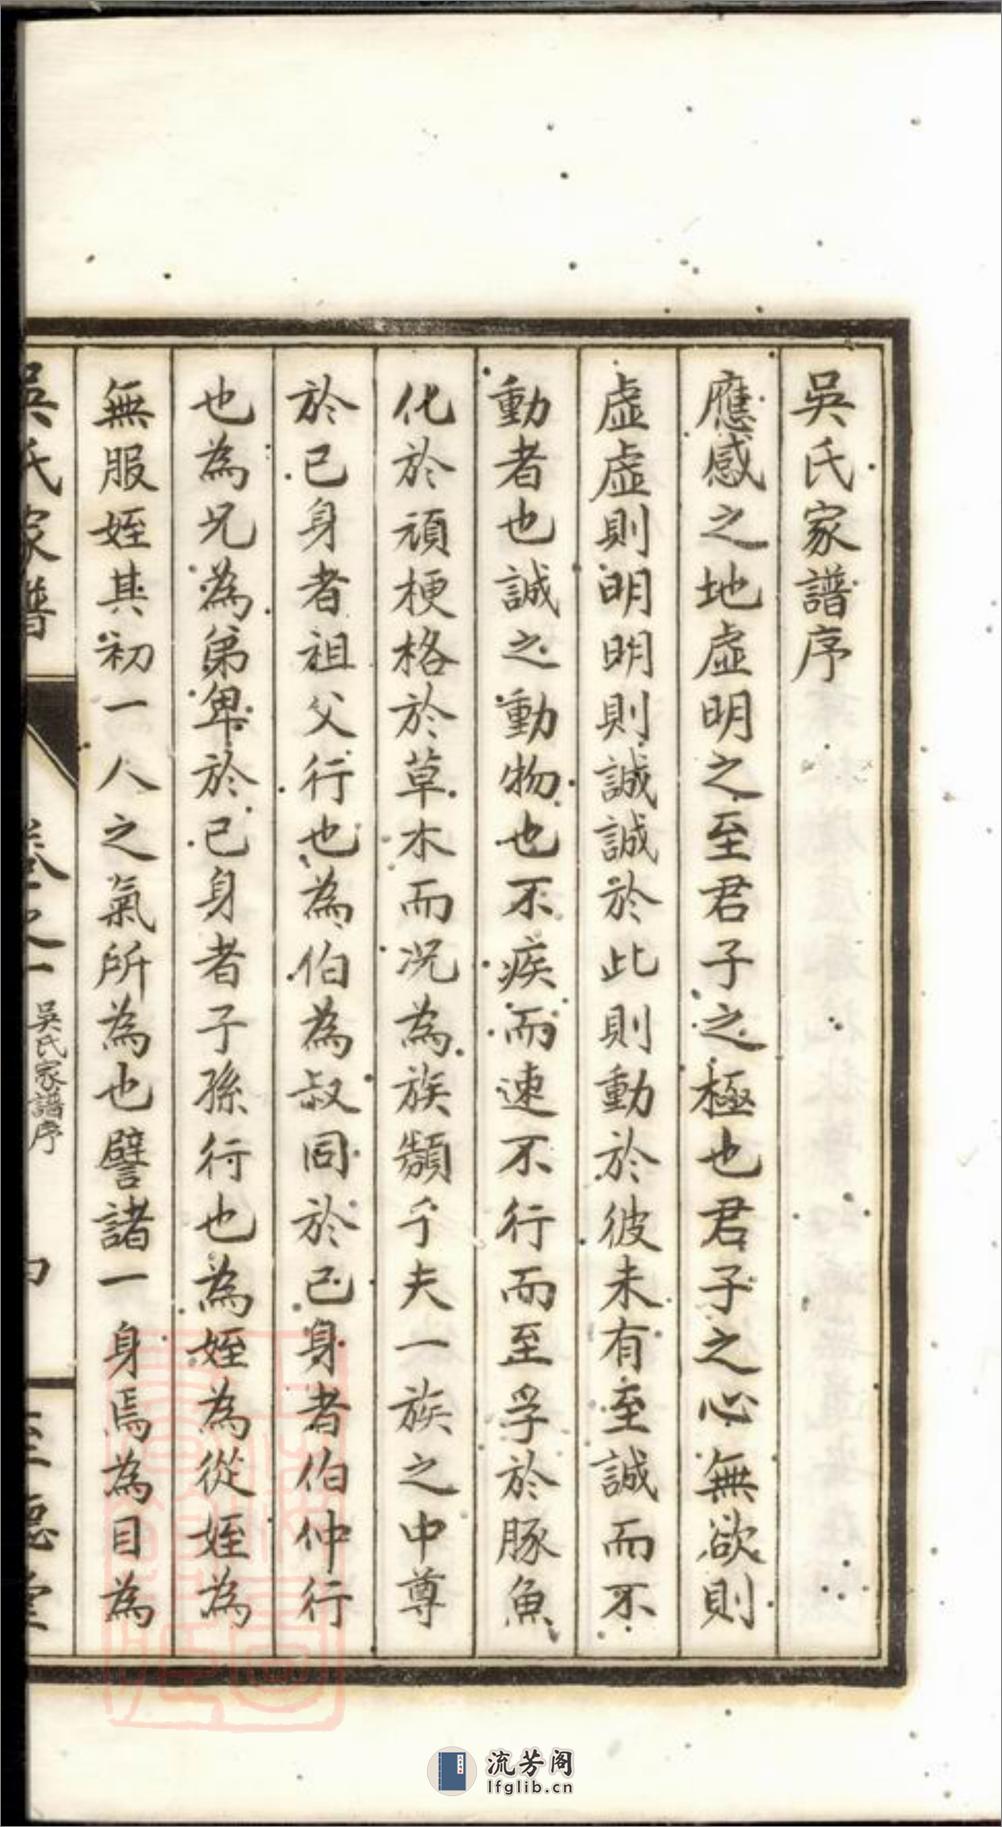 吳氏家譜序
應感之地虛明之至君子之極也君子之心無欲則
虛虛則明明則誠誠於此則動於彼未有至誠而不
動者也誠之動物也不疾而速不行而至孚於豚魚
化於頑梗格於草木而況為族類乎夫一族之中尊
於己身者祖父行也為伯為叔同於己身者伯仲行
也為兄為弟卑於己身者子孫行也為姪為從姪為
無服姪其初一人之氣所為也譬諸一身焉為目為
吳氏家譜
卷之一
吳氏家譜序
至德堂
流芳阁
lfglib.cn